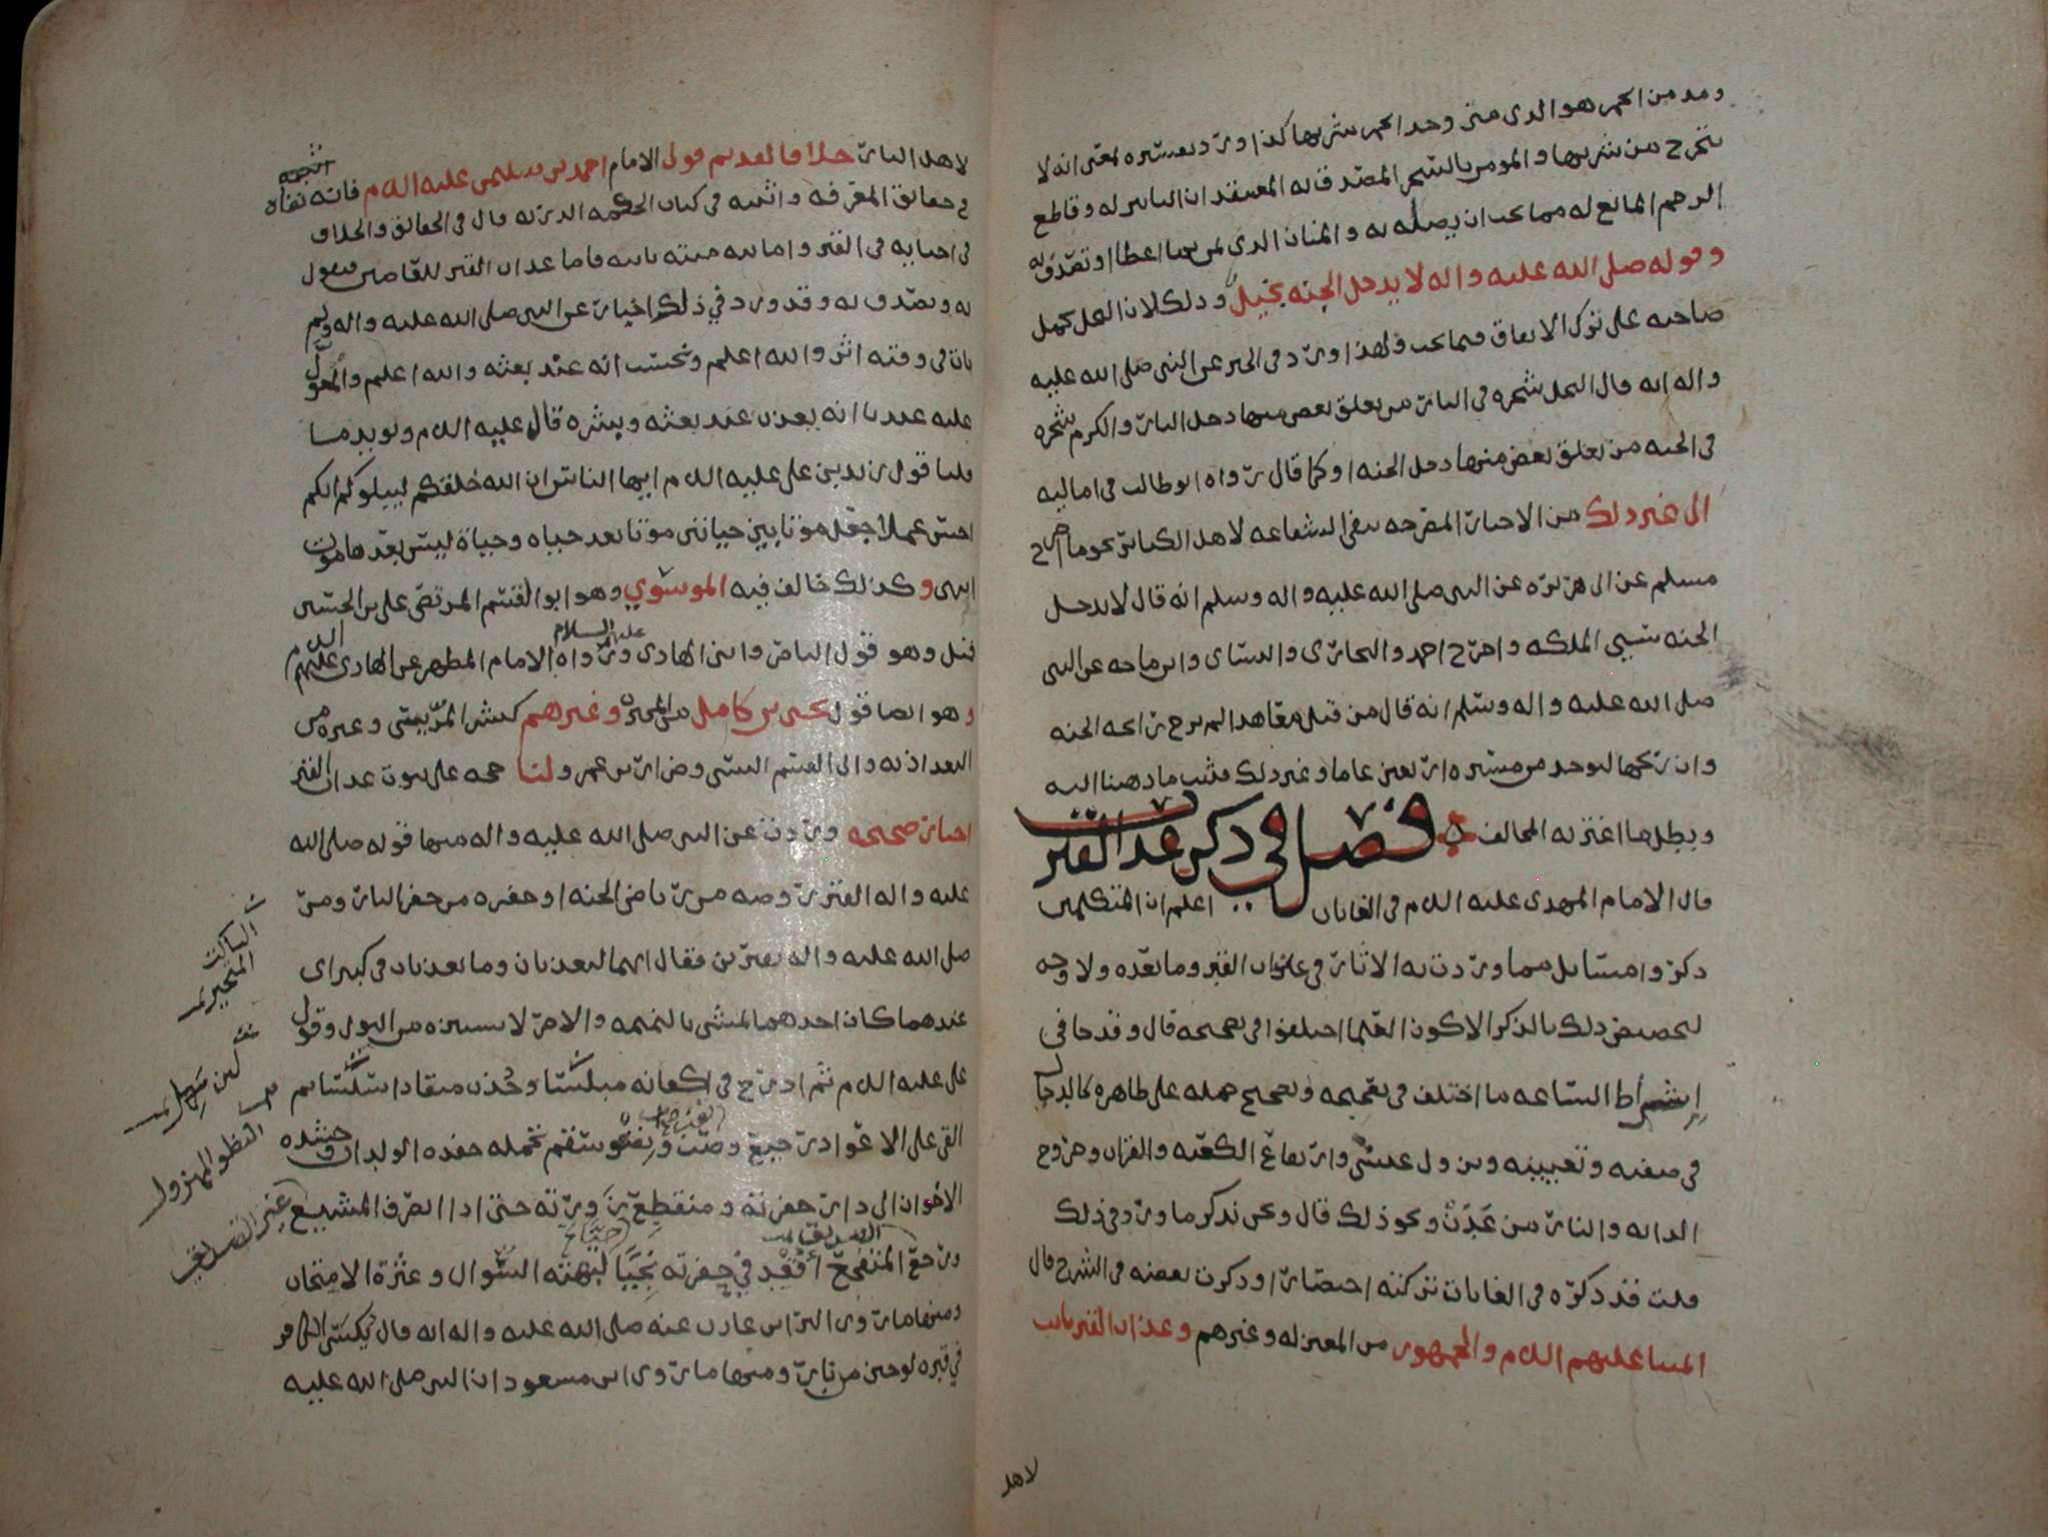 ومدمن الخمر هو الذي متى وجد الخمر شربها كذا ورد تفسيره بمعنى انه لا
يتحرج من شربها والمومن بالسحر المصدق به المعتقد ان التاثير له وقاطع
الرحم المانع له مما يجب ان يصله به والمنان الذي يمن بما اعطا او تصدق به
وقوله صلى الله عليه واله لا يدخل الجنه بخيل وذلك لان البخل يحمل
صاحبه على ترك الانفاق فيما يجب ولهذا ورد في الخبر عن النبي صلى الله عليه
واله انه قال البخل شجره في النار من تعلق بغصن منها دخل النار والكرم شجره
في الجنه من تعلق بغصن منها دخل الجنه او كما قال رواه ابو طالب في اماليه
الى غير ذلك من الاخبار المصرحه بنفي الشفاعه لاهل الكبائر نحو ما اخرج
مسلم عن ابي هريره عن النبي صلى الله عليه واله وسلم انه قال لا يدخل
الجنه سيي الملكه واخرج احمد والبخاري والنساي وابن ماجه عن النبي
صلى الله عليه واله وسلم انه قال من قتل معاهدا لم يرح رائحه الجنه
وان ريحها ليوجد من مسيره اربعين عاما وغير ذلك فثبت ما ذهبنا اليه
وبطل ما اغتر به المخالف فصل في ذكر عذاب القبر
قال الامام المهدي عليه السلم في الغايات اعلم ان المتكلمين
ذكروا مسائل مما وردت به الاثار في عذاب القبر وما بعده ولا وجه
لتخصيص ذلك بالذكر الا كون العلما اختلفوا في تصحيحه قال وقد جا في
اشراط الساعه ما اختلف في تصحيحه وتصحيح حمله على ظاهره كالدجال
في صفته وتعيينه ونزول عيسى وارتفاع الكعبه والقران وخروج
الدابه والنار من عدن ونحو ذلك قال ونحن نذكر ما ورد في ذلك
قلت قد ذكره في الغايات تركته اختصارا وذكرت بعضه في الشرح قال
ائمتنا عليهم السلم والجمهور من المعتزله وغيرهم وعذاب القبر ثابت
لاهل
لاهل النار خلافا لقديم قول الامام احمد بن سليمن عليه السلم فانه نفاه
في حقائق المعرفه واثبته في كتاب الحكمه الدريه قال في الحقائق والخلاف
في احيائه في القبر واماتته ميته ثانيه فاما عذاب القبر للعاصين فنقول
به ونصدق به وقد ورد في ذلك اخبار عن النبي صلى الله عليه واله ولم
يات في وقته اثر والله اعلم ونحسب انه عند بعثه والله اعلم والمعول
عليه عندنا انه يعذب عند بعثه ونشره قال عليه السلم ويويد ما
قلنا قول زيد بن علي عليه السلم ايها الناس ان الله خلقكم ليبلوكم ايكم
احسن عملا جعل موتا بين حياتين موتا بعد حياه وحياة ليس بعدها موت
انتهى وكذلك خالف فيه الموسوي وهو ابو القسم المرتضى علي بن الحسين
قيل وهو قول الناصر وابن الهادي عليه السلام ورواه الامام المطهر عن الهادي عليهم السلم
وهو ايضا قول يحيى بن كامل من المجبرة وغيرهم كبشر المريسي وغيره من
البغداذيه وابي القسم البستي وضرار بن عمرو لنا حجه على ثبوت عذاب القبر
اخبار صحيحه وردت عن النبي صلى الله عليه واله منها قوله صلى الله
عليه واله القبر روضه من رياض الجنه او حفره من حفر النار ومر
صلى الله عليه واله بقبرين فقال انهما ليعذبان وما يعذبان في كبير اي
عندهما كان احدهما يمشي بالنميمه والاخر لا يستنزه من البول وقول
علي عليه السلم ثم ادرج في اكفانه مبلسا وجذب منقادا سلسا ثم
القي على الاعواد رجيع وصب ونضو سقم تحمله حفده الولدان وحشده
الاخوان الى دار غربته ومنقطع زورته حتى اذا انصرف المشيع
ورجع المتفجع اقعد في حفرته نجيا لبهتة السوال وعثرة الامتحان
ومنها ما روى البرا بن عازب عنه صلى الله عليه واله انه قال يكسى الكافر
في قبره لوحين من نار ومنها ما روى ابن مسعود ان النبي صلى الله عليه